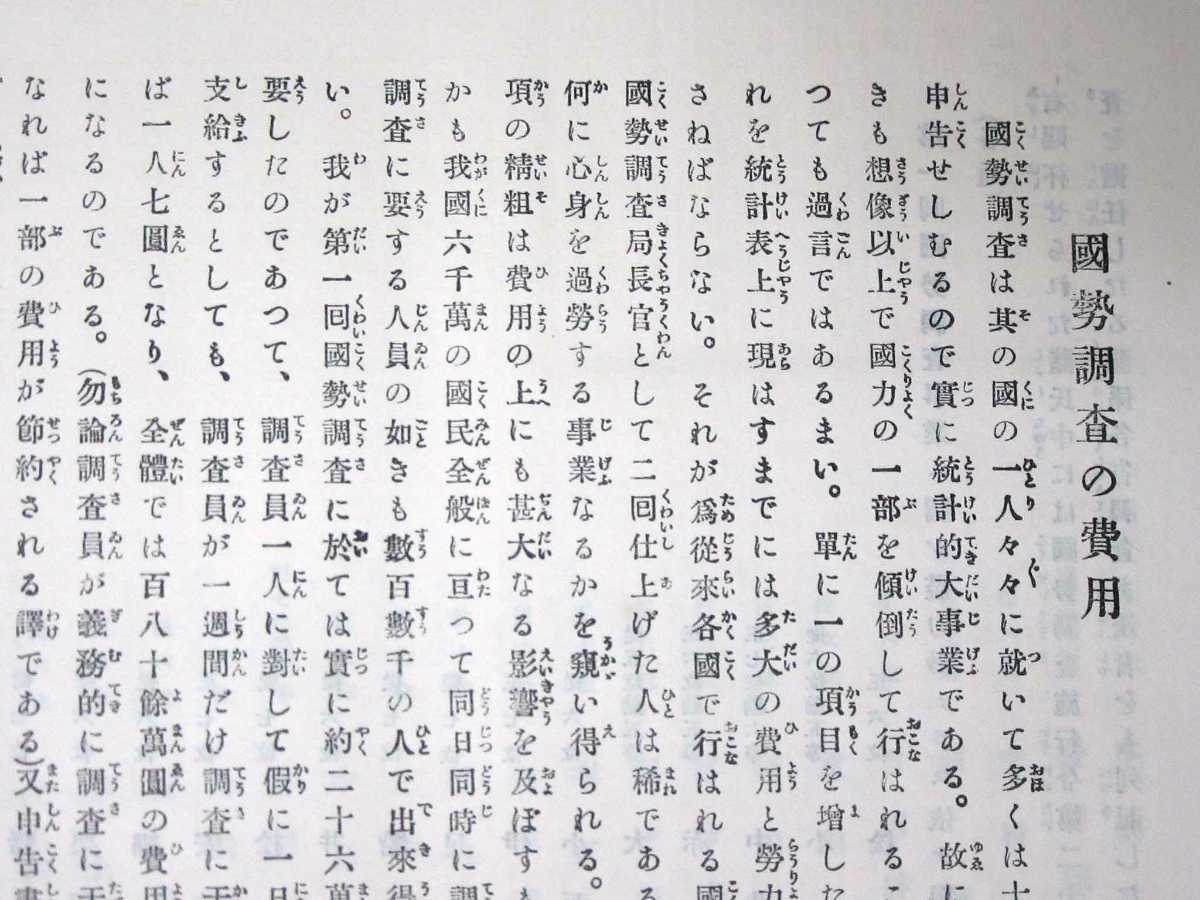 國勢調査の費用
國勢調査は其の國の一人々々に就いて多くは
申告せしむるので實に統計的大事業である。故に
きも想像以上で國力の一部を傾倒して行はれるこ
つても過言ではあるまい。單に一の項目を増した
れを統計表上に現はすまでには多大の費用と勞力
さねばならない。それが爲從來各國で行はれる國
國勢調査局長官として二回仕上げた人は稀である
何に心身を過勞する事業なるかを窺い得られる。
項の精粗は費用の上にも甚大なる影響を及ぼすも
かも我國六千萬の國民全般に亘つて同日同時に調
調査に要する人員の如きも數百數千の人で出來得
い。我が第一回國勢調査に於ては實に約二十六萬
要したのであつて、調査員一人に對して假に一日
支給するとしても、調査員が一週間だけ調査に干
ば一人七圓となり、全體では百八十餘萬圓の費用
になるのである。(勿論調査員が義務的に調査に干
なれば一部の費用が節約される譯である)又申告書